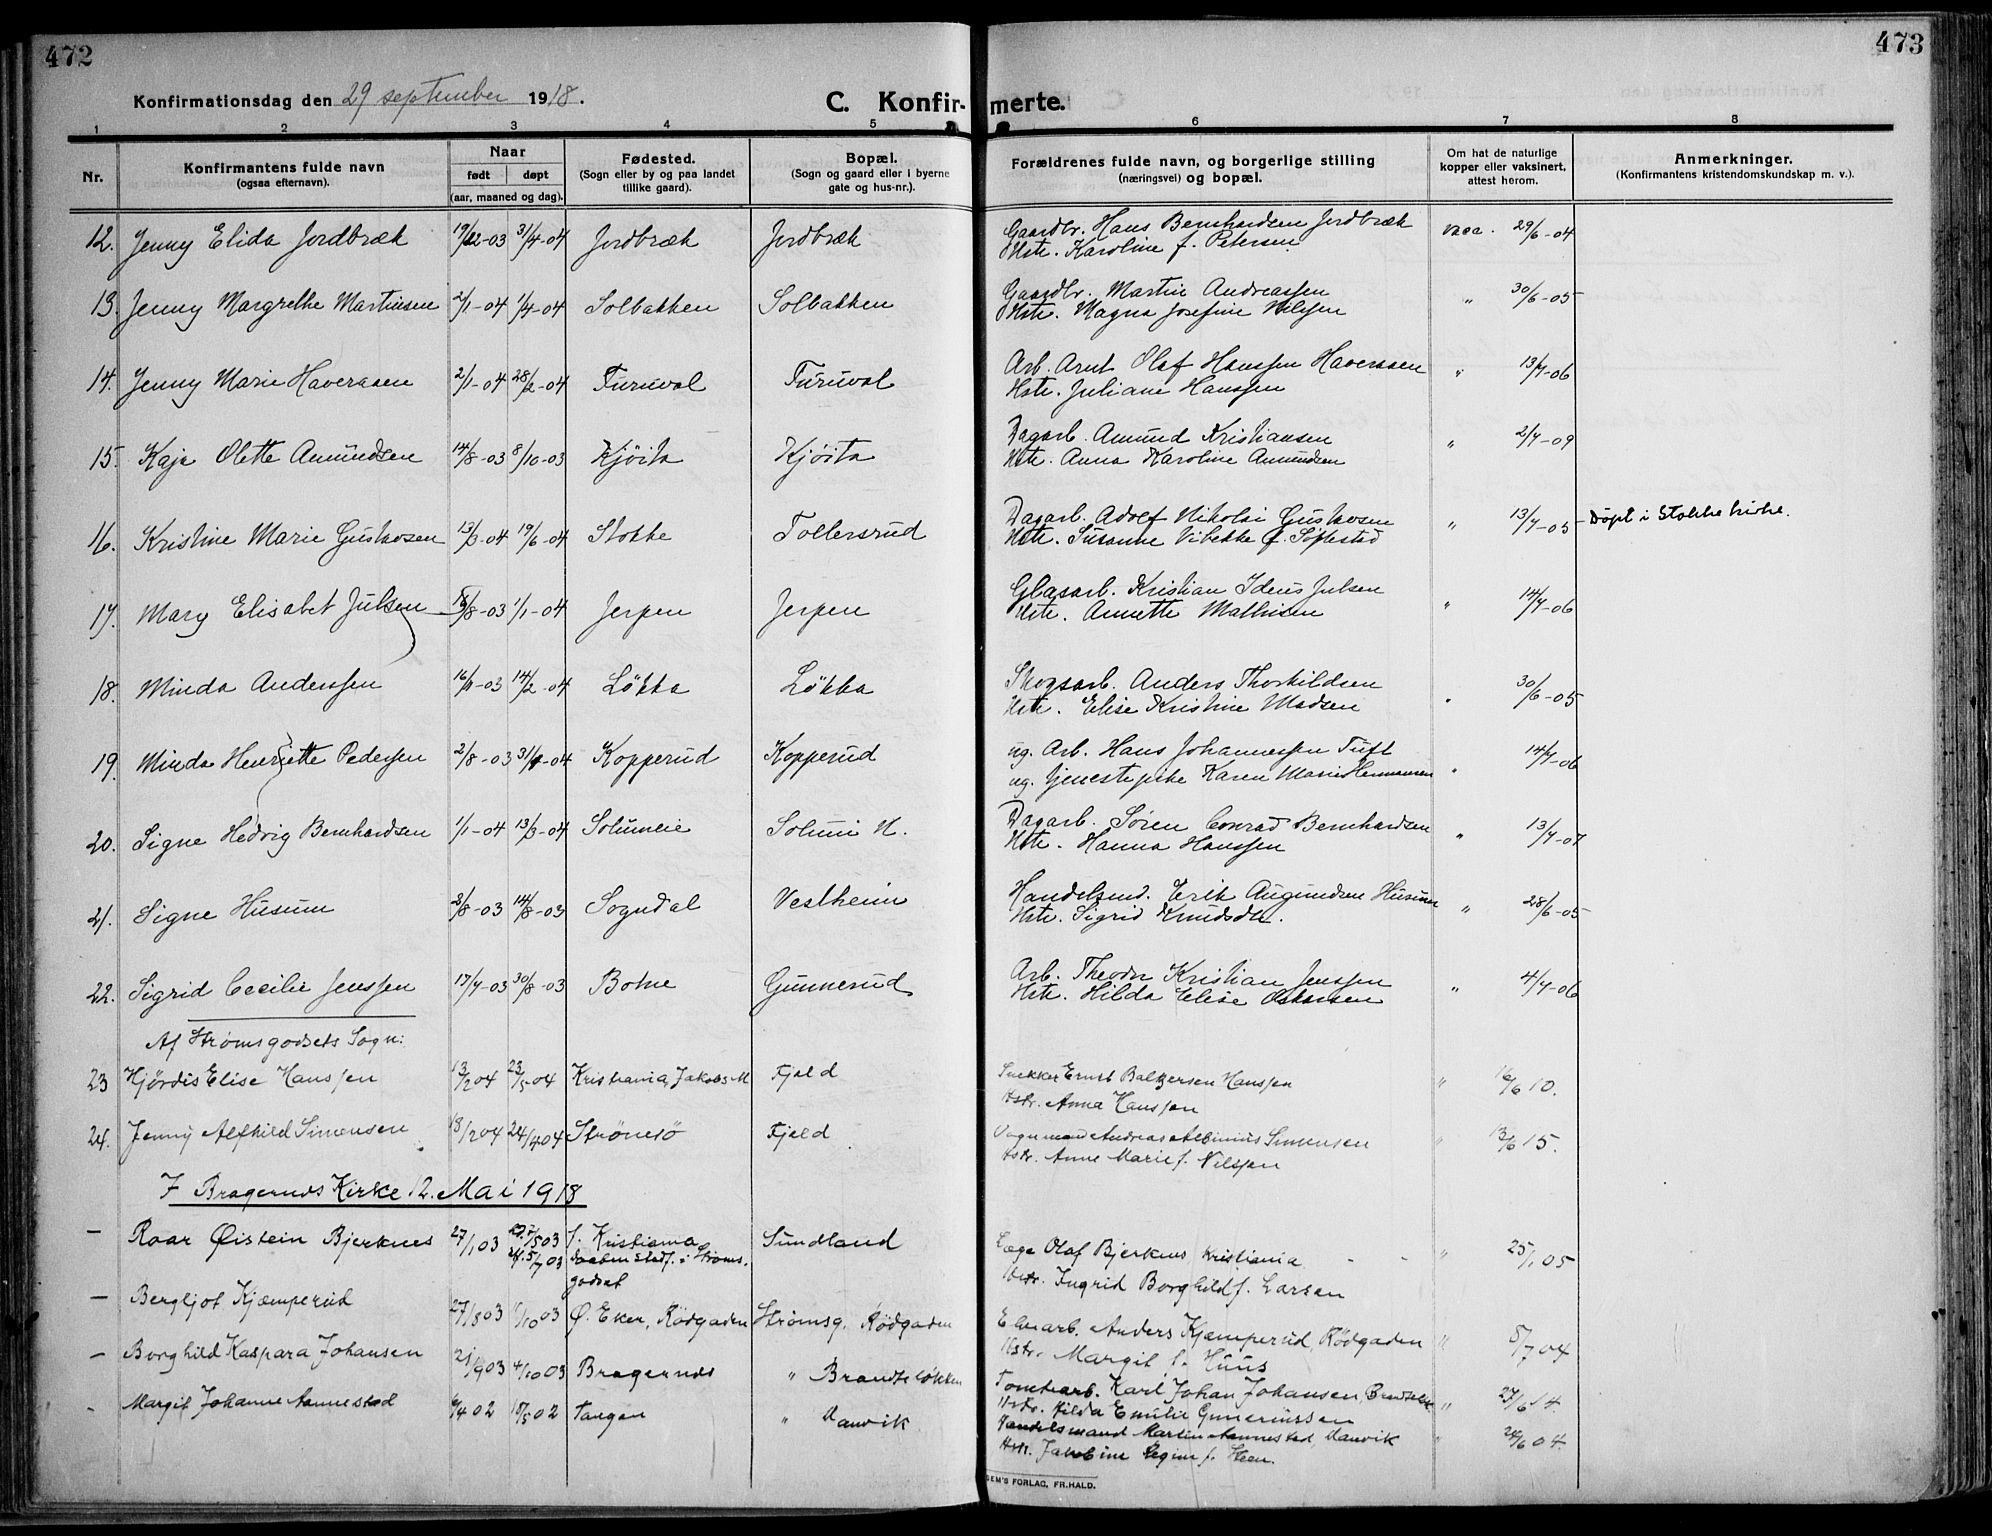 472
473
Konfirmationsdag den 29 september 1918.
C. Konfir-merte.
1 2 3 4 5 6 7 8
Nr.
Konfirmantens fulde navn
(ogsaa efternavn).
Naar
født døpt
(aar, maaned og dag).
Fødested.
(Sogn eller by og paa landet
tillike gaard).
Bopæl.
(Sogn og gaard eller i byerne
gate og hus-nr.).
Forældrenes fulde navn, og borgerlige stilling
(næringsvei) og bopæl.
Om hat de naturlige
kopper eller vaksinert,
attest herom.
Anmerkninger.
(Konfirmantens kristendomskundskap m. v.).
12. Jenny Elida Jordbræk 19/12-03 3/4-04 Jordbræk Jordbræk Gaardbr. Hans Bernhardsen Jordbræk vacc. 29/6-04
Hstr. Karoline f. Petersen
13. Jenny Margrethe Martinsen 2/1-04 1/4-04 Solbakken Solbakken Gaardbr. Martin Andreassen " 30/6-05
Hstr. Magna Josefine Nilssen
14. Jenny Marie Haveraaen 2/1-04 28/2-04 Furuvol Furuvol Arb. Arnt Olaf Hanssen Haveraaen " 13/7-06
Hstr. Juliane Hanssen
15. Kaja Olette Amundsen 14/8-03 8/10-03 Kjøita Kjøita Dagarb. Amund Kristiansen " 2/7-09
Hstr. Anna Karoline Amundsen
16. Kristine Marie Gustavsen 13/3-04 19/6-04 Stokke Tollersrud Dagarb. Adolf Nikolai Gustavsen " 13/7-05 Døpt i Stokke kirke.
Hstr. Susanne Vibekke f. Softestad
17. Mary Elisabet Julsen 18/8-03 1/1-04 Jerpen Jerpen Glasarb. Kristian Idenus Julsen " 14/7-06
Hstr. Annette Mathisen
18. Minda Anderssen 16/11-03 14/2-04 Løkka Løkka Skogsarb. Anders Thorkildsen " 30/6-05
Hstr. Elise Kristine Madsen
19. Minda Henriette Pedersen 2/8-03 31/1-04 Kopperud Kopperud ug. Arb. Hans Johannessen Tuft " 14/7-06
ug. tjenestepike Karen Marie Hermansen
20. Signe Hedvig Bernhardsen 1/1-04 13/3-04 Solumeie Solum N. Dagarb. Søren Conrad Bernhardsen " 13/7-07
Hstr. Hanna Hanssen
21. Signe Husum 2/8-03 14/8-03 Sogndal Vestheim Handelsmd. Erik Augundsen Husum " 28/6-05
Hstr. Sigrid Knudsdtr.
22. Sigrid Cecilie Jenssen 17/7-03 30/8-03 Botne Gunnerud Arb. Theodor Kristian Jenssen " 4/7-06
Hstr. Hilda Elise Oskarsen
Af Strømsgodsets Sogn:
23 Hjørdis Elise Hanssen 13/2 04 23/5-04 Kristiania, Jakobs M Fjeld Snekker Ernst Baltzersen Hanssen " 16/6 10.
Hstr. Anna Hanssen
24. Jenny Alfhild Simensen 18/2 04 24/4 04 Strømsø Fjeld Vognmand Andreas Albinius Simensen " 13/6 15.
Hstr. Anne Marie f. Nilssen
I Bragernæs Kirke 12. Mai 1918
– Roar Øistein Bjerknes 27/1 03 Kristiania Sundland Læge Olaf Bjerknes Kristiania " 25/1 05
i Strømsgodset
Hstr. Ingrid Borghild f. Larsen
– Bergljot Kjæmperud 27/8 03 1/10 03 Ø. Eker, Rødgaden Strømsg. Rødgaden Elvearb. Anders Kjæmperud, Rødgaden " 5/7 04
Hstr. Margit f. Huus
– Borghild Kaspara Johansen 21/9 03 4/10 03 Bragernæs " Brandtsløkken Tomtearb. Karl Johan Johansen, " 27/6 14
Hstr. Hilda Emilie Gunneriussen
- Margit Johanne Aannestad 6/4 02 18/5 02 Tangen " Danvik Handelsmand Martin Aannestad, Danvik " 24/6 04.
Hstr. Jakobine Regine f. Heen.
SEM'S FORLAG, FR.HALD.